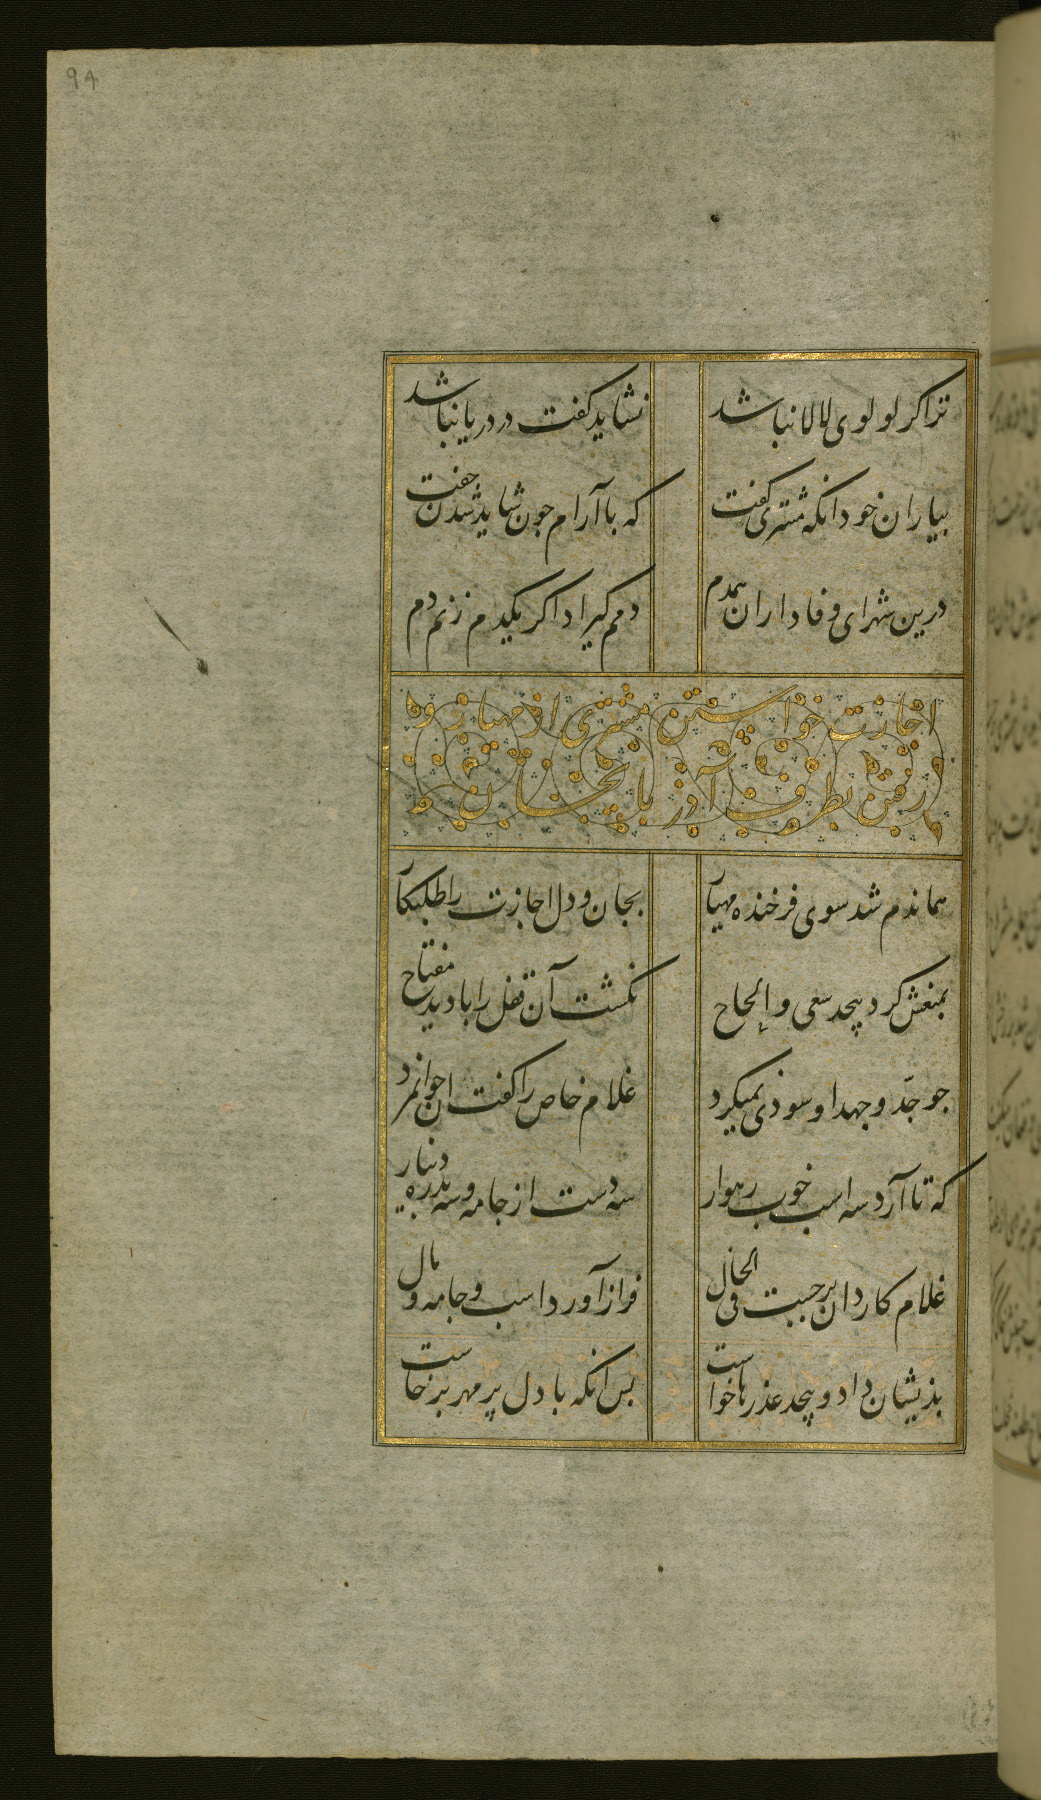 94
ترا کر لولوی لالا نباشد
نشاید کفت در دریا نباشد
بیاران خود انکه مشتری کفت
که با آرام جون شاید شدن جفت
درین شهر ای وفاداران همدم
دمم کیرا د اکر یکدم زنم دم
اجازت خواستن مشتری از مهیار و
رفتن بطرف آذربایجان
هماندم شد سوی فرخنده مهیار
بجان و دل اجازت را طلبکار
بمنعش کرد بیحد سعی و إلحاح
نکشت آن قفل را با دید مفتاح
جو جدّ و جهد او سوذی نمیکرد
غلام خاص را کفت ان جوانمرد
که تا آرد سه اسب خوب رهوار
سه دست از جامه و سه بدره دینار
غلام کاردان برجست فی الحال
فراز آورد اسب و جامه و مال
بذیشان داد و بیحد عذرها خواست
بس انکه با دل پر مهر برخاست